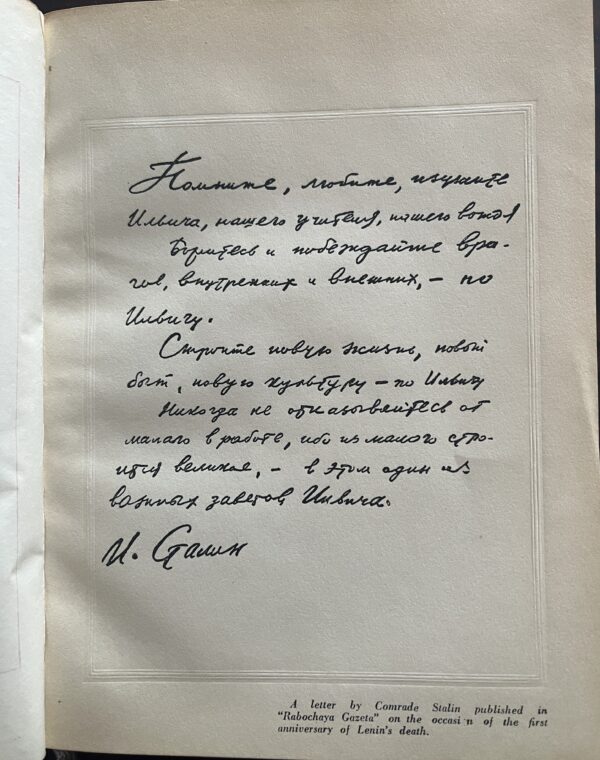 Помните, любите, изучайте
Ильича, нашего учителя, нашего вождя
Боритесь и побеждайте вра-
гов, внутренних и внешних, – по
Ильичу.
Стройте новую жизнь, новый
быт, новую культуру – по Ильичу
Никогда не отказывайтесь от
малого в работе, ибо из малого стро-
ится великое, – в этом один из
важных заветов Ильича.
И. Сталин
A letter by Comrade Stalin published in
"Rabochaya Gazeta" on the occasi n of the first
anniversary of Lenin's death.